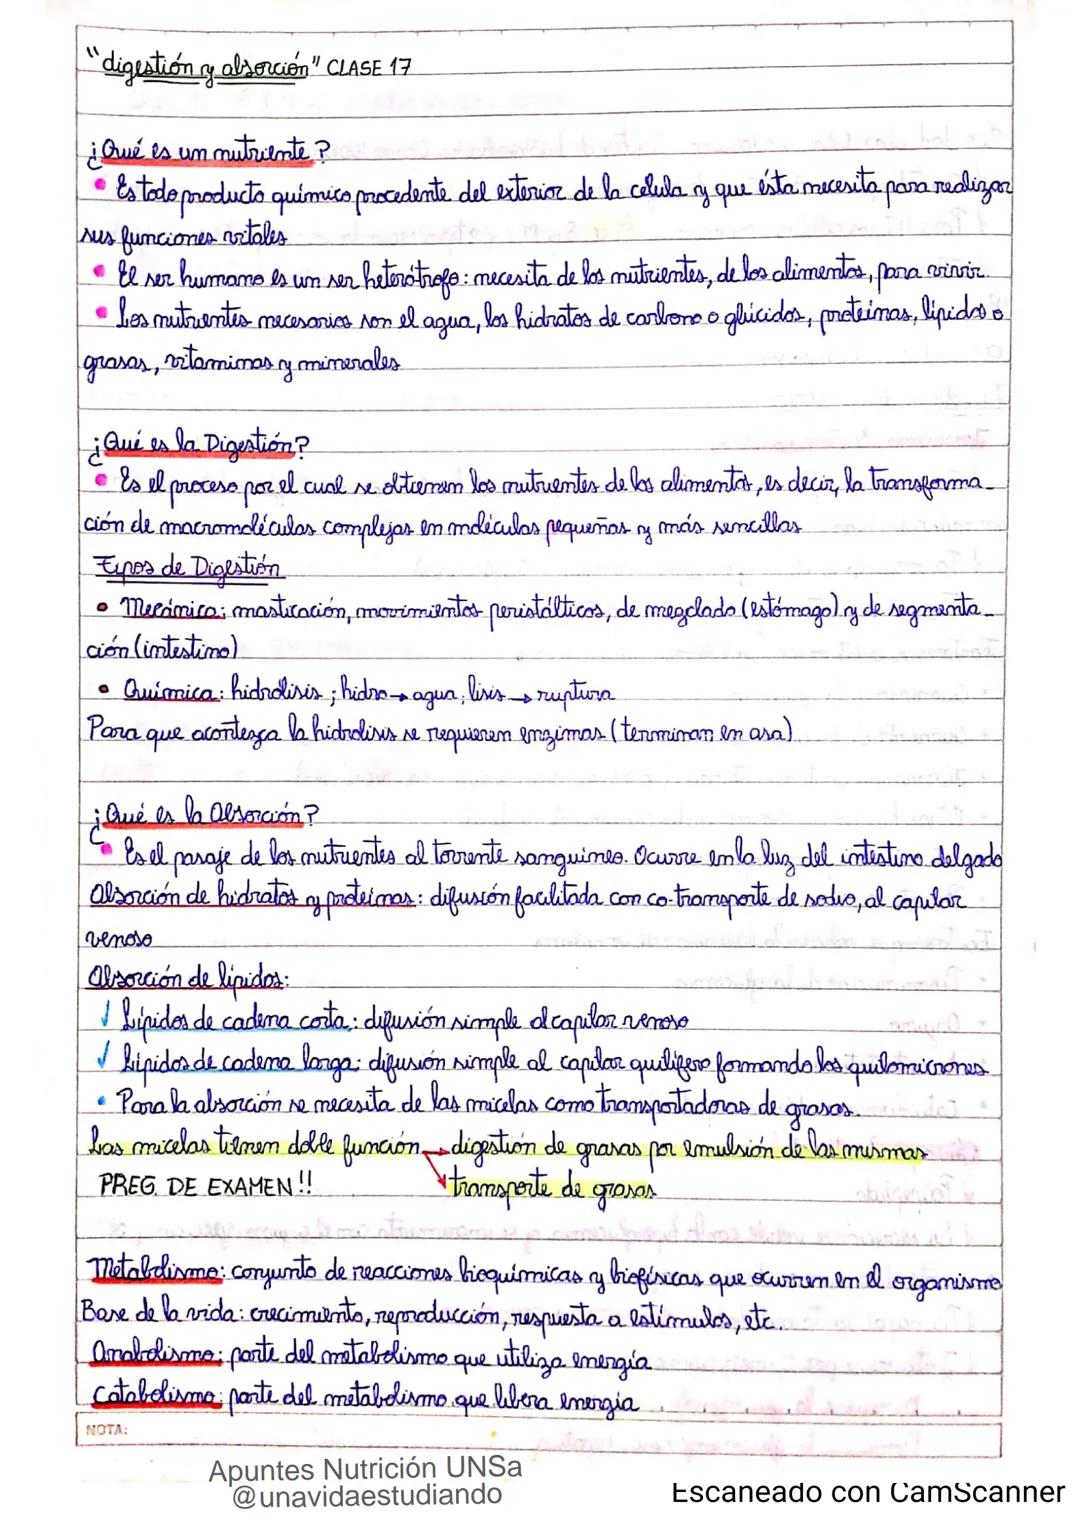 "digestión y absorción" CLASE 17
¿Qué es un nutriente?
• Es todo producto químico procedente del exterior de la célula y que ésta necesita para realizar
sus funciones vitales
• El ser humano es un ser heterótrofo: necesita de los nutrientes, de los alimentos, para vivir.
• Los nutrientes necesarios son el agua, los hidratos de carbono o glúcidos, proteinas, lípidos o
grasas, vitaminas y minerales
¿Qué es la Digestión?
• Es el proceso por el cual se obtienen los nutrientes de los alimentos, es decir, la transforma_
ción de macromoléculas complejas en moléculas pequeñas y más sencillas
Tipos de Digestión
• Mecánica: masticación, movimientos peristálticos, de mezclado (estómago) y de segmenta_
ción (intestino)
• Química: hidrólisis; hidro→agua; lisis→ruptura
Para que acontezca la hidrólisis se requieren enzimas (terminan en asa).
¿Qué es la Absorción?
• Es el pasaje de los nutrientes al torrente sanguineo. Ocurre en la luz del intestino delgado
Absorción de hidratos y proteinas: difusión facilitada con co-transporte de sodio, al capilar
venoso
Absorción de lípidos:
✓ Lípidos de cadena corta: difusión simple al capilar venoso
✓ Lípidos de cadena larga: difusión simple al capilar quilífero formando los quilomicrones
• Para la absorción se necesita de las micelas como transportadoras de grasas.
Las micelas tienen doble función→digestión de grasas por emulsión de las mismas
PREG. DE EXAMEN!! transporte de grasas
Metabolismo: conjunto de reacciones bioquímicas y biofísicas que ocurren en el organismo
Base de la vida: crecimiento, reproducción, respuesta a estímulos, etc.
Anabolismo: parte del metabolismo que utiliza energía
Catabolismo: parte del metabolismo que libera energía
NOTA:
Apuntes Nutrición UNSa
@unavidaestudiando
Escaneado con CamScanner